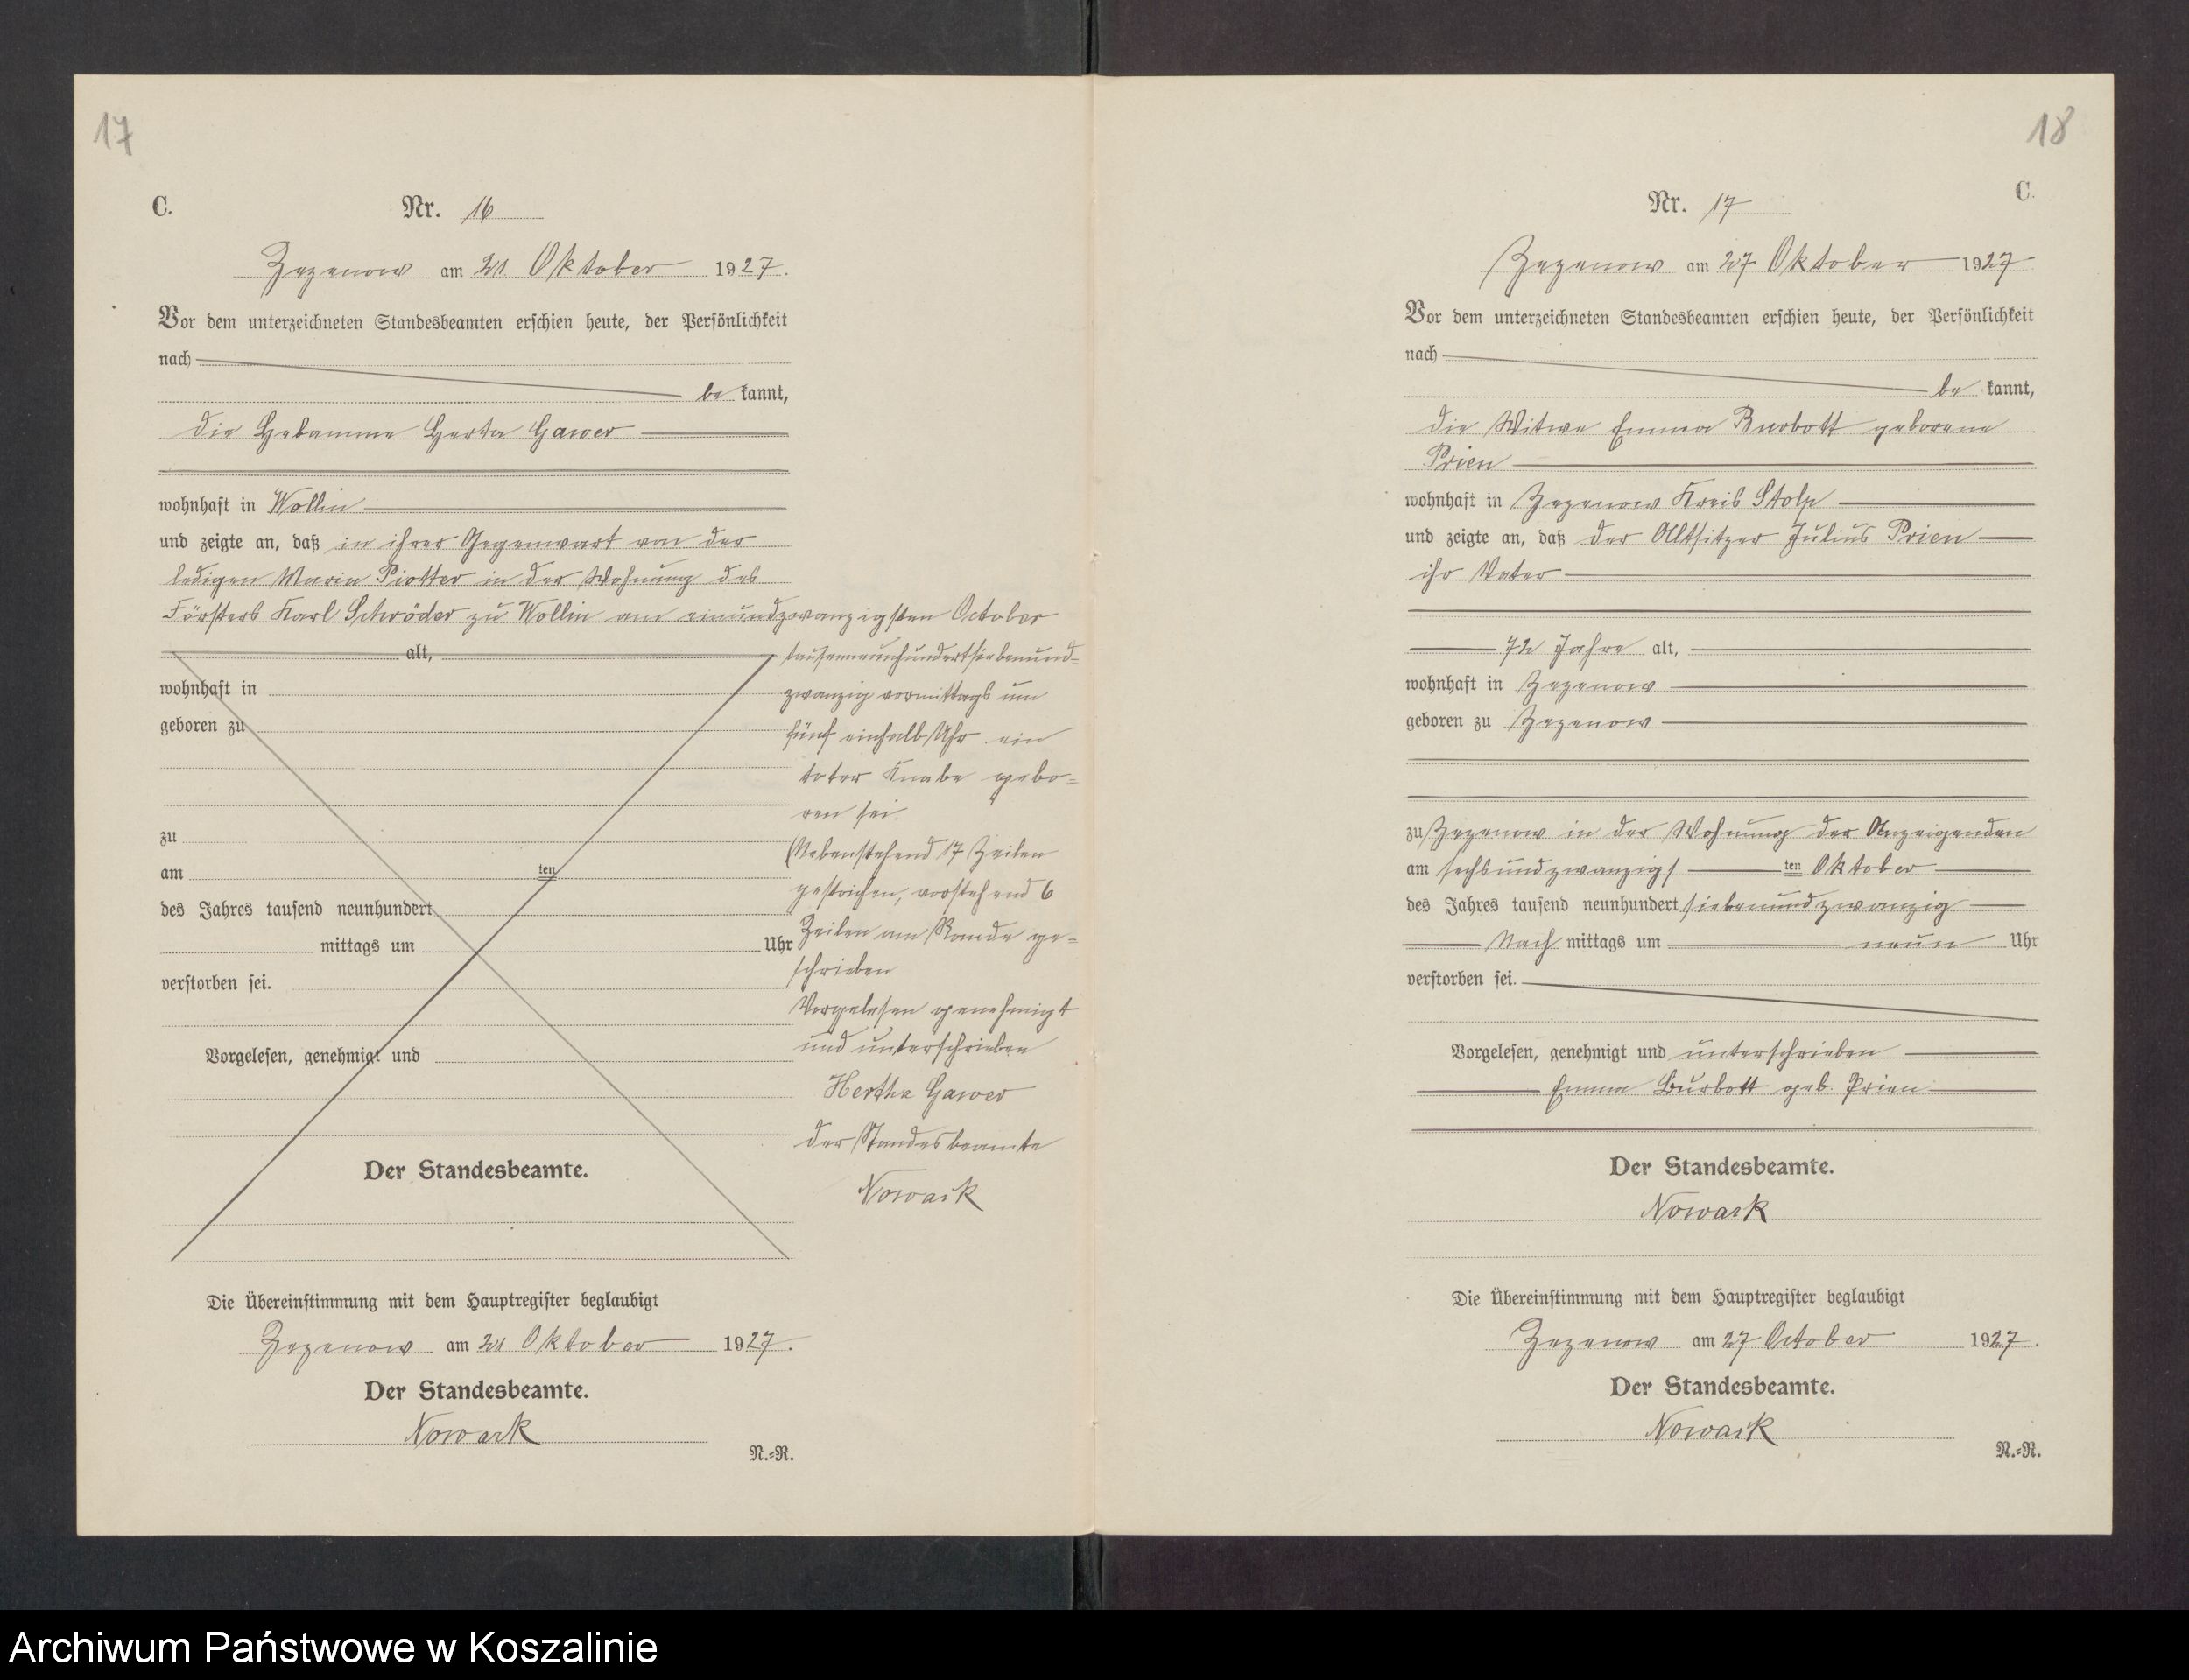 17
C.
Nr. 16
Zezenow am 21 Oktober 1927.
Vor dem unterzeichneten Standesbeamten erschien heute, der Persönlichkeit
nach
be kannt,
die Hebamme Herta Gawer
wohnhaft in Wollin
und zeigte an, daß in ihrer Gegenwart von der
ledigen Maria Piotter in der Wohnung des
Försters Karl Schröder zu Wollin am einundzwanzigsten October
alt,
tausenneunhundertsiebenund-
wohnhaft in
zwanzig vormittags um
geboren zu
fünf einhalb Uhr ein
toter Knabe gebo-
ren sei.
zu
Nebenstehend 17 Zeilen
am ten
gestrichen, vorstehend 6
des Jahres tausend neunhundert
Zeilen am Rande ge-
mittags um Uhr
schrieben
verstorben sei.
Vorgelesen genehmigt
und unterschrieben
Vorgelesen, genehmigt und
Hertha Gawer
der Standesbeamte
Der Standesbeamte.
Nowack
Die Übereinstimmung mit dem Hauptregister beglaubigt
Zezenow am 21 Oktober 1927.
Der Standesbeamte.
Nowack
N.=R.
18
C.
Nr. 17
Zezenow am 27 Oktober 1927
Vor dem unterzeichneten Standesbeamten erschien heute, der Persönlichkeit
nach
be kannt,
die Witwe Emma Burbott geborene
Prien
wohnhaft in Zezenow Kreis Stolp
und zeigte an, daß der Altsitzer Julius Prien
ihr Vater
72 Jahre alt,
wohnhaft in Zezenow
geboren zu Zezenow
zu Zezenow in der Wohnung der Anzeigenden
am sechsundzwanzigs ten Oktober
des Jahres tausend neunhundert siebenundzwanzig
Nach mittags um neun Uhr
verstorben sei.
Vorgelesen, genehmigt und unterschrieben
Emma Burbott geb. Prien
Der Standesbeamte.
Nowack
Die Übereinstimmung mit dem Hauptregister beglaubigt
Zezenow am 27 October 1927.
Der Standesbeamte.
Nowack
N.=R.
Archiwum Państwowe w Koszalinie